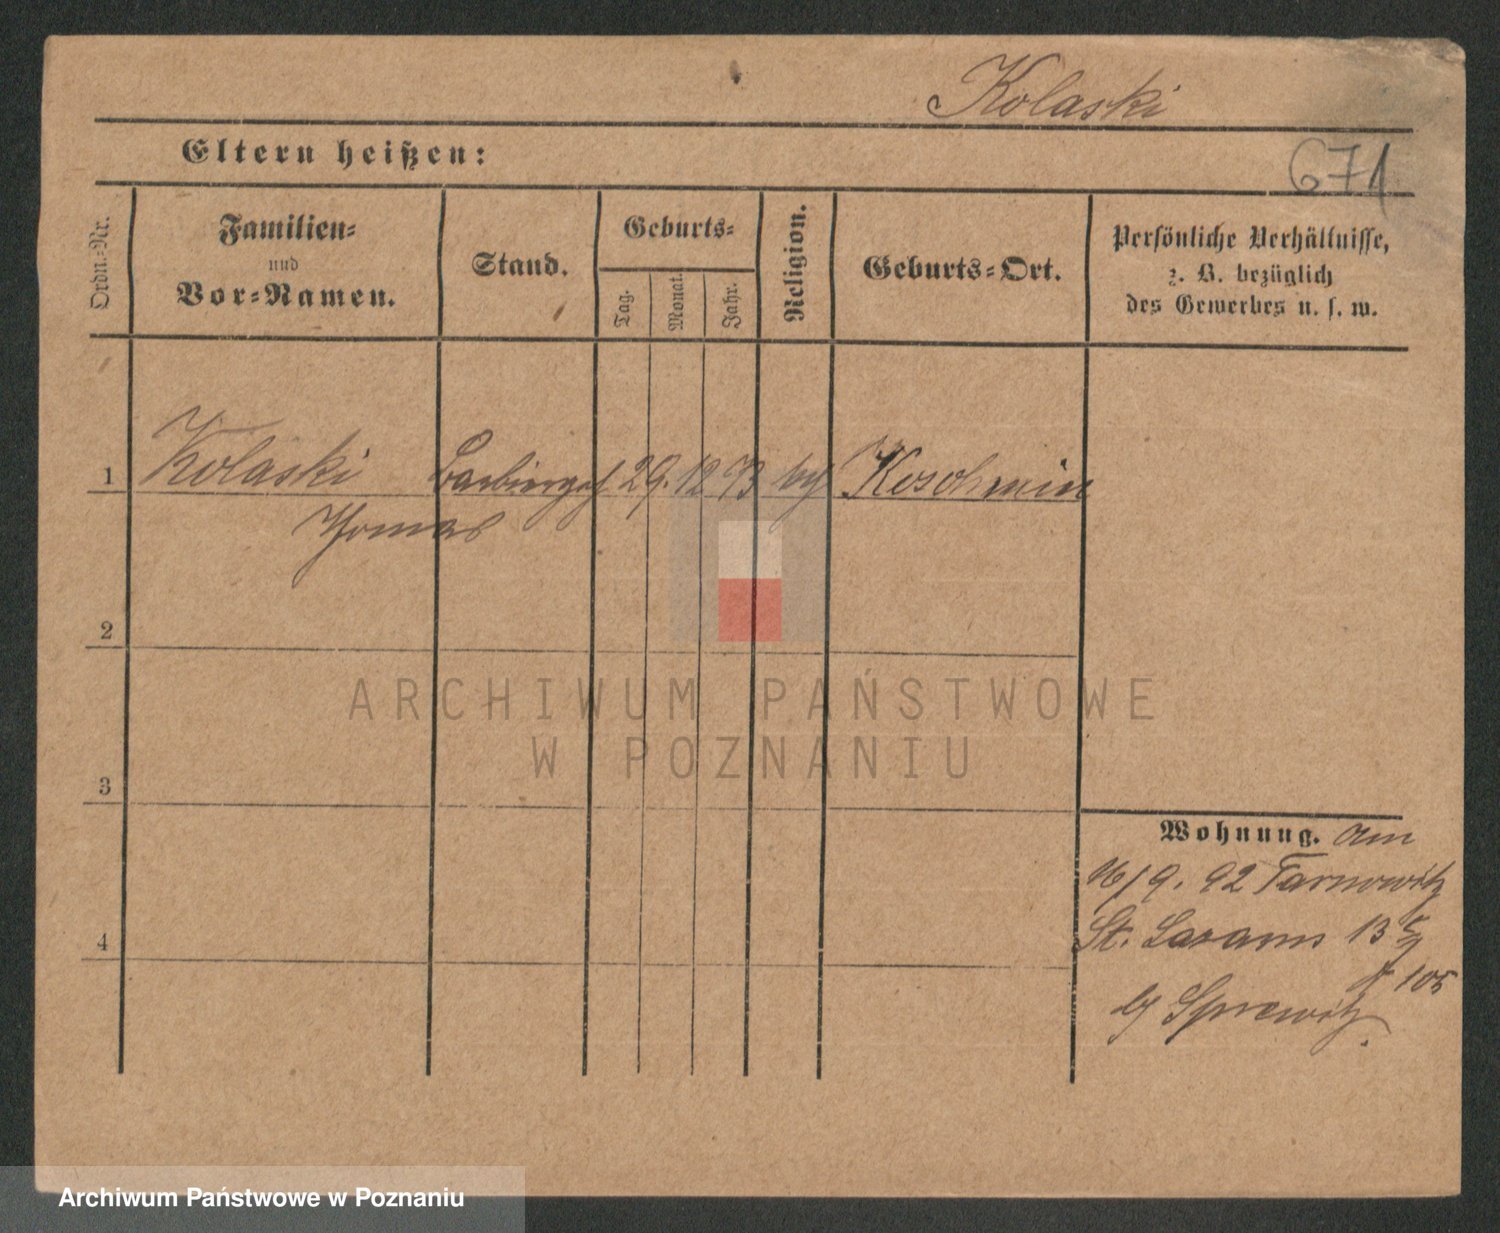 Kolaski
Eltern heißen:
671
Ordn.-Nr.
Familien-
und
Vor-Namen.
Stand.
Geburts-
Tag.
Monat.
Jahr.
Religion.
Geburts-Ort.
Persönliche Verhältnisse,
z. B. bezüglich
des Gewerbes u. s. w.
1 Kolaski Barbiergeh 29. 12 73 Koschmin
Thomas
2
ARCHIWUM PAŃSTWOWE
W POZNANIU
3
Wohnung. am
16/9. 92 Tarnowitz
4
St. Lazarus 13
105
Archiwum Państwowe w Poznaniu